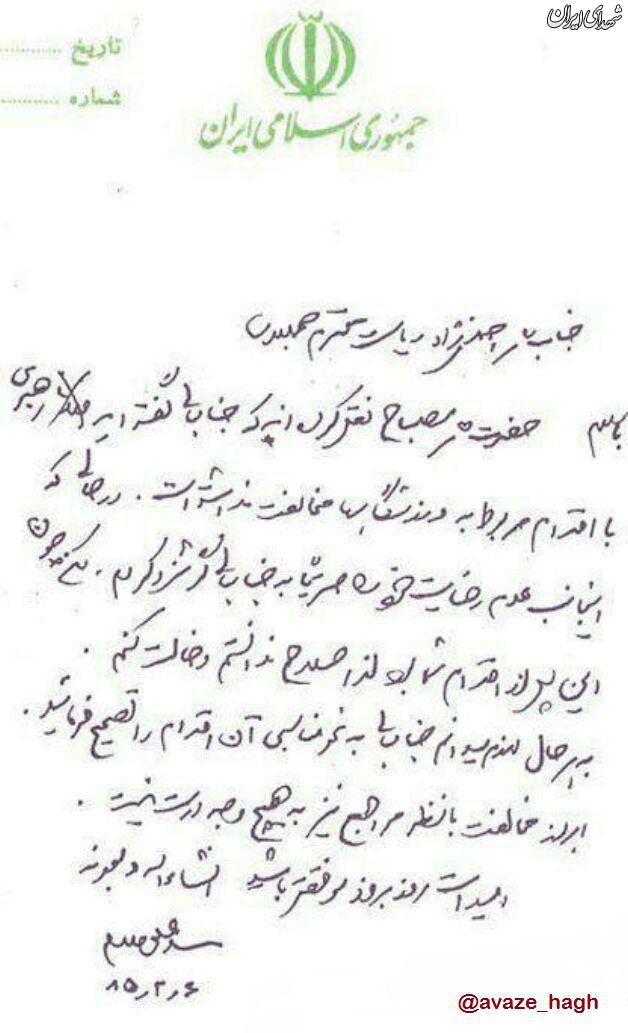 شهدای ایران
تاریخ ..........
شماره ..........
جمهوری اسلامی ایران
جناب احمدی‌نژاد ریاست محترم جمهوری
حضرت مصباح نقل کرده‌اند که جنابعالی گفته‌اید رهبری
با اقدام مربوط به ورزشگاهها مخالفت نداشته است. در حالی که
اینجانب عدم رضایت خود را صریحاً به جنابعالی گوشزد کردم. چون
این پس از اقدام شما بود لذا صلاح ندانستم دخالت کنم.
به هر حال لازم میدانم جنابعالی به نحو مناسبی آن اقدام را تصحیح فرمائید.
ابراز مخالفت با نظر مراجع نیز به هیچ وجه درست نیست.
امید است روز بروز موفقتر باشید انشاءاله
سید علی
۸۵٫۲٫۶
@avaze_hagh